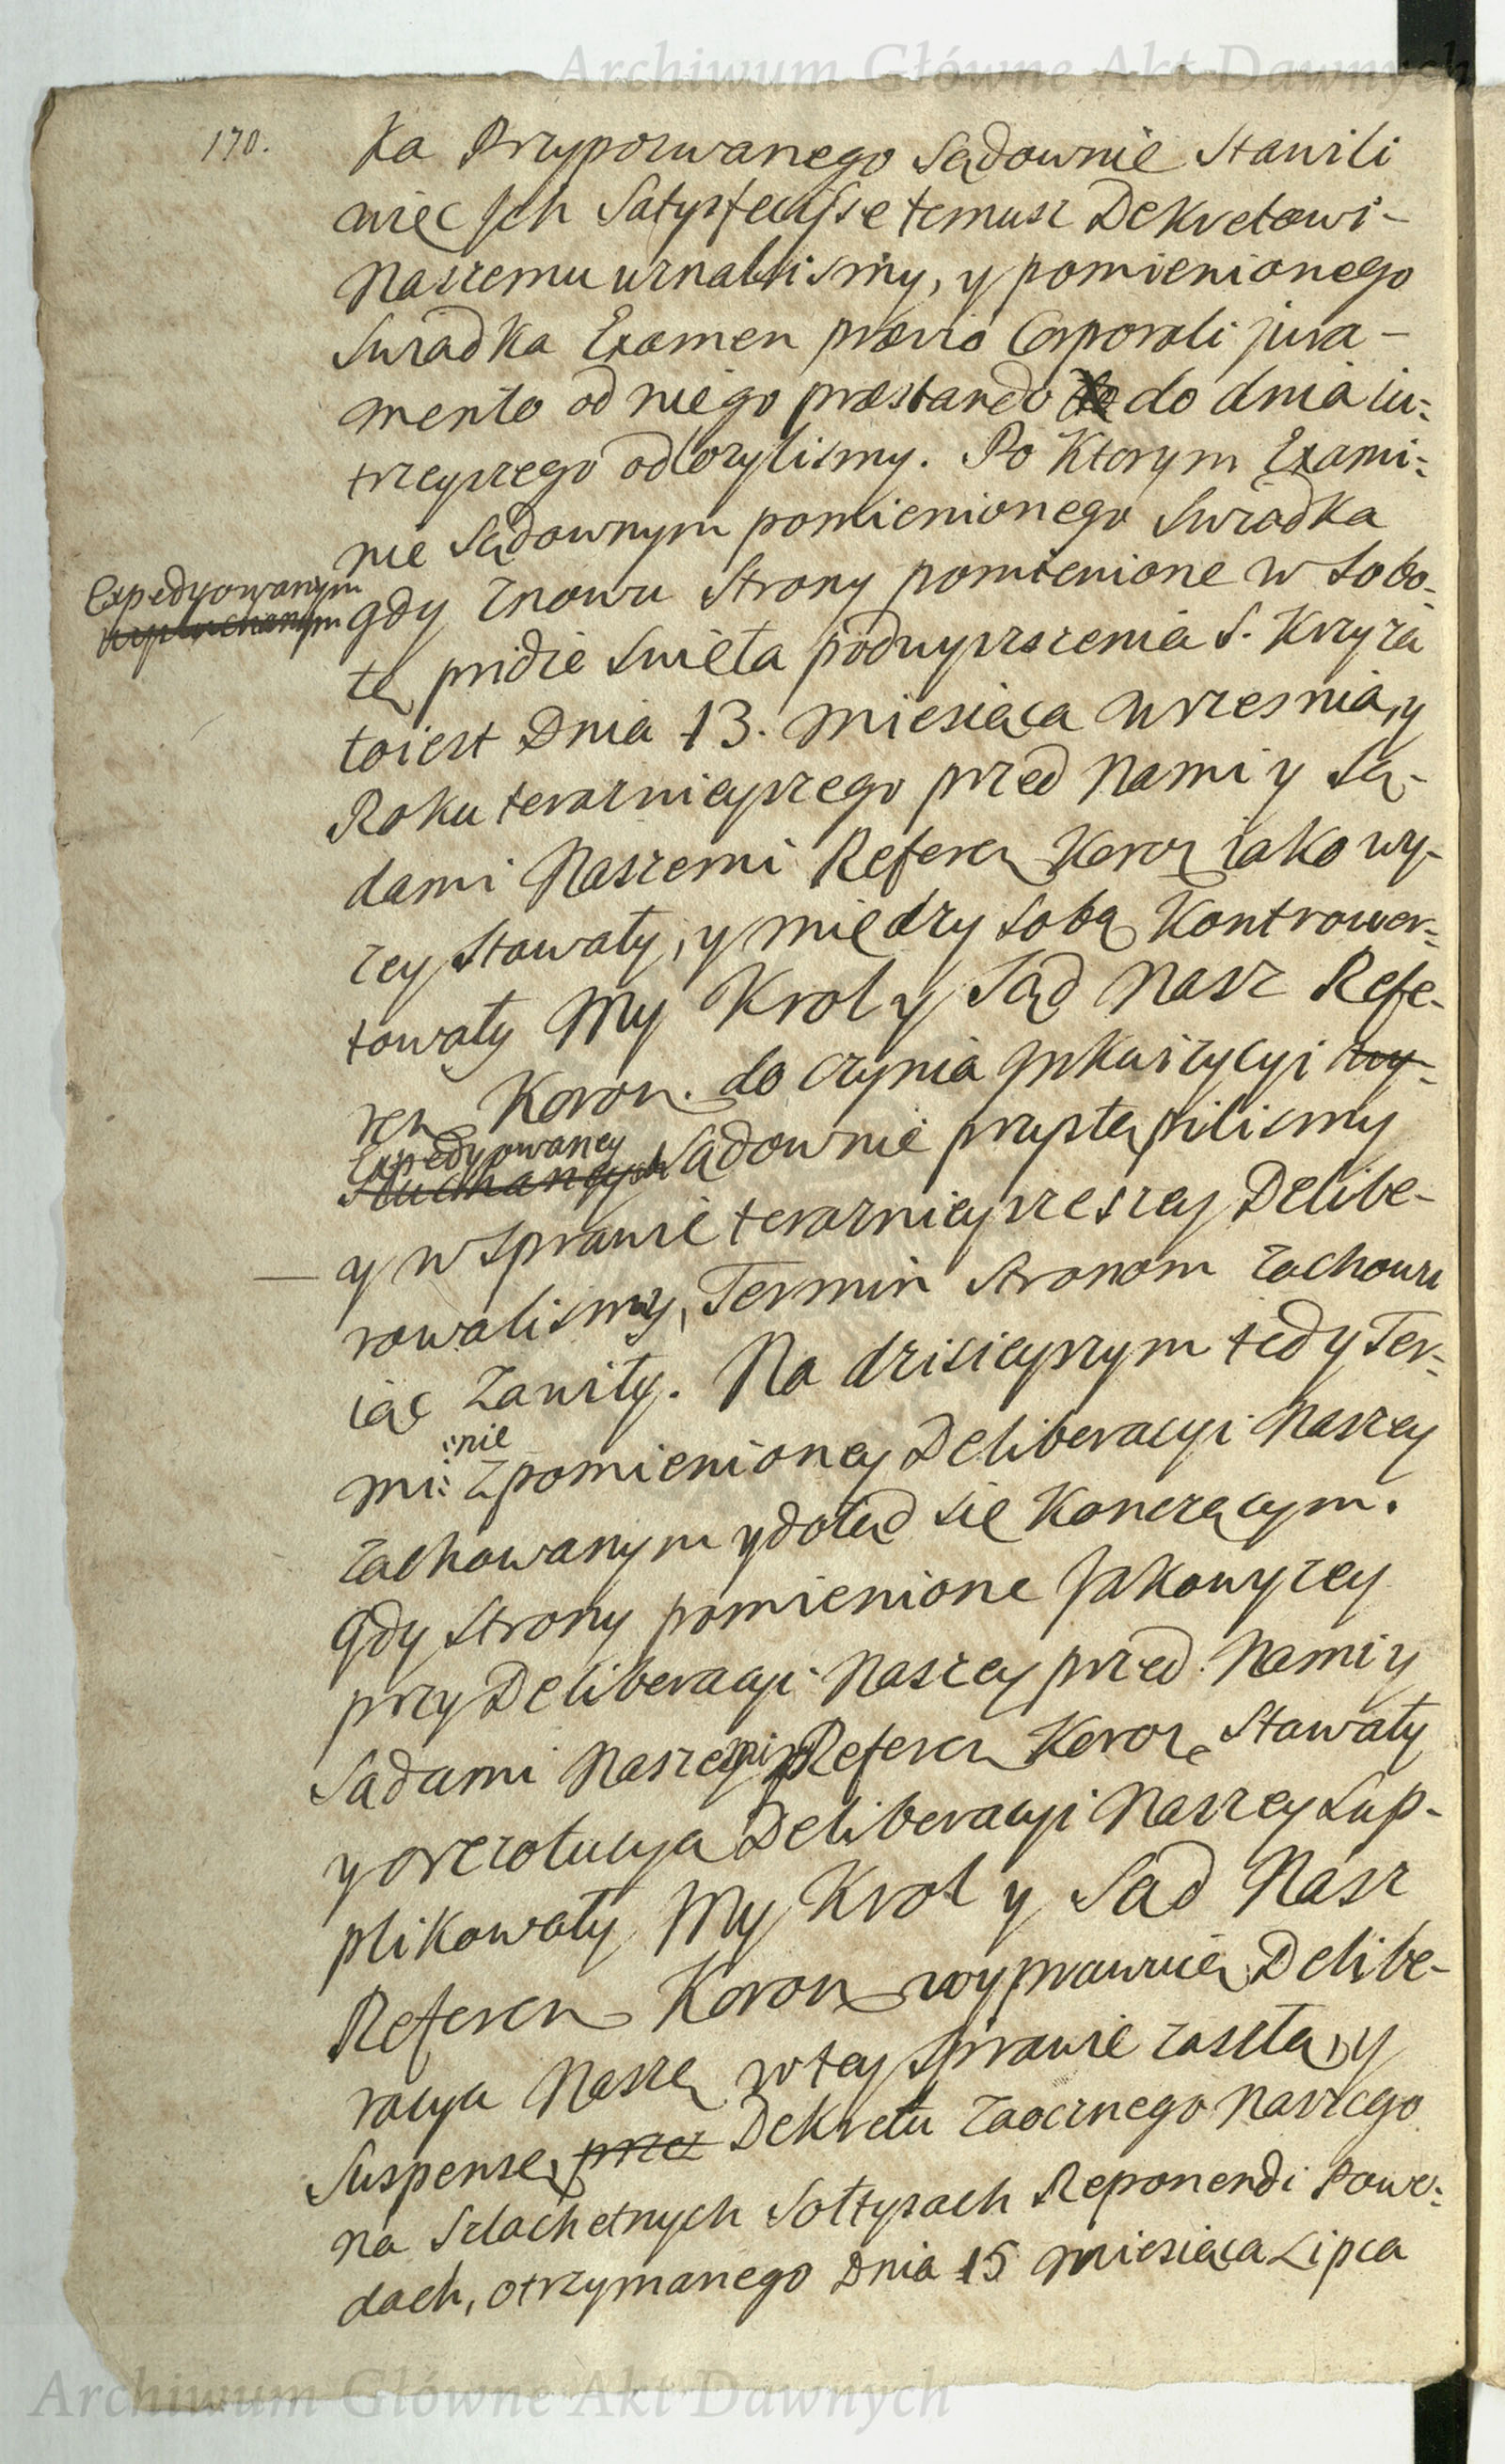 Archiwum Główne Akt Dawnych
170.
ka Przypozwanego Sądownie Stawili
więc Ich Satysfecisse temusz Dekretowi-
Naszemu uznalismy, y pomienionego
Swiadka Examen prævio Corporali jura-
mento od niego præstando do dnia iu:
trzeyszego odłozylismy. Po Ktorym Exami:
nie Sądownym pomienionego Swiadka
Expedyowanym
gdy znowu Strony pomienione w Sobo-
tę pridie Swięta podwyszszenia S. Krzyża
toiest Dnia 13. Miesiąca Wrzesnia, y
Roku teraznieyszego przed Nami y Są-
dami Naszemi Referen Koron iako wy-
zey Stawały, y między sobą Kontrower:
towały My Krol y Sąd Nasz Refe-
ren Koron. do czynia Inkwizycyi wy-
Expedyowaney
Słuchanych Sądownie przystąpilismy
y w Sprawie teraznieyszeszey Delibe-
rowalismy, Termin Stronom zachowu
iąc Zawity. Na dzisieyszym tedy Ter:
:nie
mi: z pomienioney Deliberacyi Naszey
zachowanym y dotąd się Kończącym.
gdy Strony pomienione Jako wyzey
przy Deliberacyi Naszey przed Nami y
Sądami Naszemi Referen Koron Stawały
y o rezolucyą Deliberacyi Naszey Sup-
plikowały My Krol y Sąd Nasz
Referen Koron wyprawuią Delibe-
racyą Naszę w tey Sprawie zaszłą, y
Suspensę przez Dekretu Zaocznego Naszego
na Szlachetnych Sołtysach Reponendi Powo:
dach, otrzymanego Dnia 15 Miesiąca Lipca
Archiwum Główne Akt Dawnych